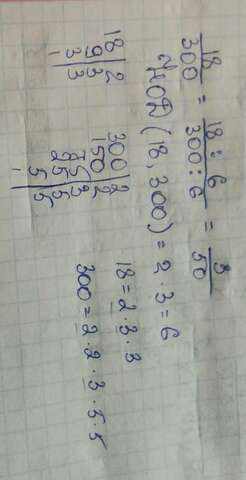 18/300 = 18:6/300:6 = 3/50
НОД (18, 300) = 2 · 3 = 6
18 | 2
9 | 3
3 | 3
1
18 = 2 · 3 · 3
300 | 2
150 | 2
75 | 3
25 | 5
5 | 5
1
300 = 2 · 2 · 3 · 5 · 5